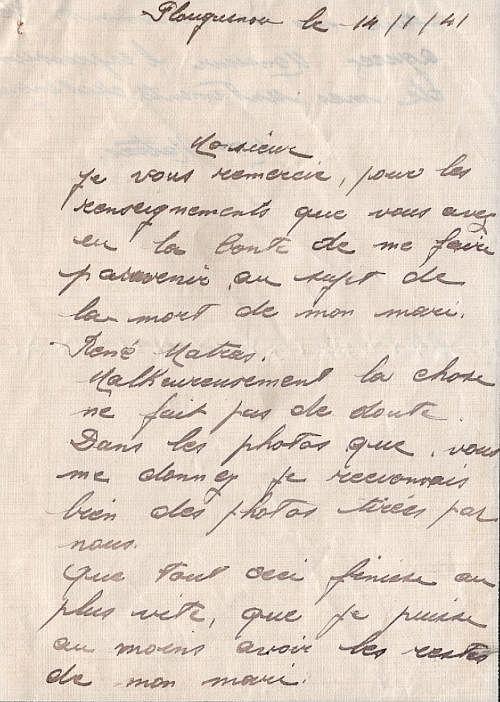 Plouguenou le 14/1/41
Monsieur
Je vous remercie, pour les
renseignements que vous avez
eu la bonté de me faire
parvenir au sujet de
la mort de mon mari.
René Matras.
Malheureusement la chose
ne fait pas de doute.
Dans les photos que vous
me donnez je reconnais
bien des photos tirées par
nous.
Que tout ceci finisse au
plus vite, que je puisse
au moins avoir les restes
de mon mari.